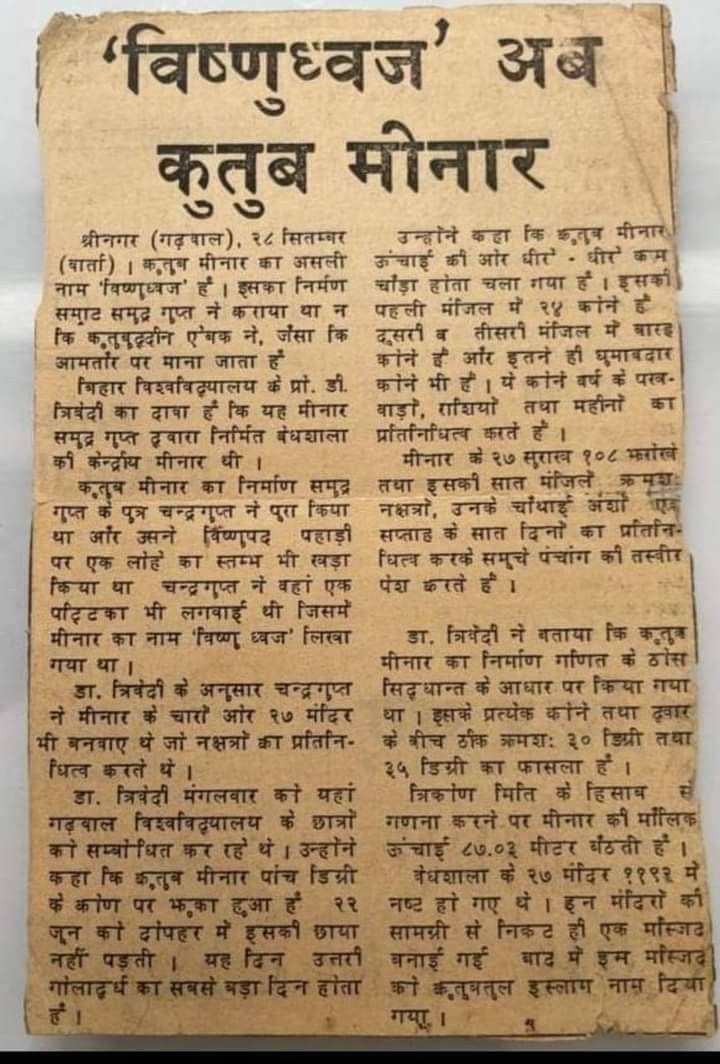 'विष्णुध्वज' अब
कुतुब मीनार
श्रीनगर (गढ़वाल), २८ सितम्बर
(वार्ता) । कुतुब मीनार का असली
नाम 'विष्णुध्वज' है । इसका निर्माण
सम्राट समुद्र गुप्त ने कराया था न
कि कुतुबुद्दीन ऐबक ने, जैसा कि
आमतौर पर माना जाता है
बिहार विश्वविद्यालय के प्रो. डी.
त्रिवेदी का दावा है कि यह मीनार
समुद्र गुप्त द्वारा निर्मित वेधशाला
की केन्द्रीय मीनार थी ।
कुतुब मीनार का निर्माण समुद्र
गुप्त के पुत्र चन्द्रगुप्त ने पुरा किया
था और उसने विष्णुपद पहाड़ी
पर एक लोहे का स्तम्भ भी खड़ा
किया था चन्द्रगुप्त ने वहां एक
पट्टिका भी लगवाई थी जिसमें
मीनार का नाम 'विष्णु ध्वज' लिखा
गया था ।
डा. त्रिवेदी के अनुसार चन्द्रगुप्त
ने मीनार के चारों ओर २७ मंदिर
भी बनवाए थे जो नक्षत्रों का प्रतिनि-
धित्व करते थे ।
डा. त्रिवेदी मंगलवार को यहां
गढ़वाल विश्वविद्यालय के छात्रों
को सम्बोधित कर रहे थे । उन्होंने
कहा कि कुतुब मीनार पांच डिग्री
के कोण पर झुका हुआ है २२
जून को दोपहर में इसकी छाया
नहीं पड़ती । यह दिन उत्तरी
गोलार्द्ध का सबसे बड़ा दिन होता
है ।
उन्होंने कहा कि कुतुब मीनार
ऊंचाई की ओर धीरे - धीरे कम
चौड़ा होता चला गया है । इसकी
पहली मंजिल में २४ कोने हैं
दूसरी व तीसरी मंजिल में बारह
कोने हैं और इतने ही घुमाबदार
कोने भी हैं । ये कोने वर्ष के पख-
वाड़ों, राशियों तथा महीनों का
प्रतिनिधित्व करते हैं ।
मीनार के २७ सुराख १०८ झरोखे
तथा इसकी सात मंजिलें क्रमशः
नक्षत्रों, उनके चौथाई अंशों एवं
सप्ताह के सात दिनों का प्रतिनि-
धित्व करके समूचे पंचांग की तस्वीर
पेश करते हैं ।
डा. त्रिवेदी ने बताया कि कुतुब
मीनार का निर्माण गणित के ठोस
सिद्धान्त के आधार पर किया गया
था । इसके प्रत्येक कोने तथा द्वार
के बीच ठीक क्रमशः ३० डिग्री तथा
३५ डिग्री का फासला है ।
त्रिकोण मिति के हिसाब से
गणना करने पर मीनार की मौलिक
ऊंचाई ८७.०३ मीटर बैठती है ।
वेधशाला के २७ मंदिर ११९२ में
नष्ट हो गए थे । इन मंदिरों की
सामग्री से निकट ही एक मस्जिद
बनाई गई बाद में इस मस्जिद
को कुतुबतुल इस्लाम नाम दिया
गया ।